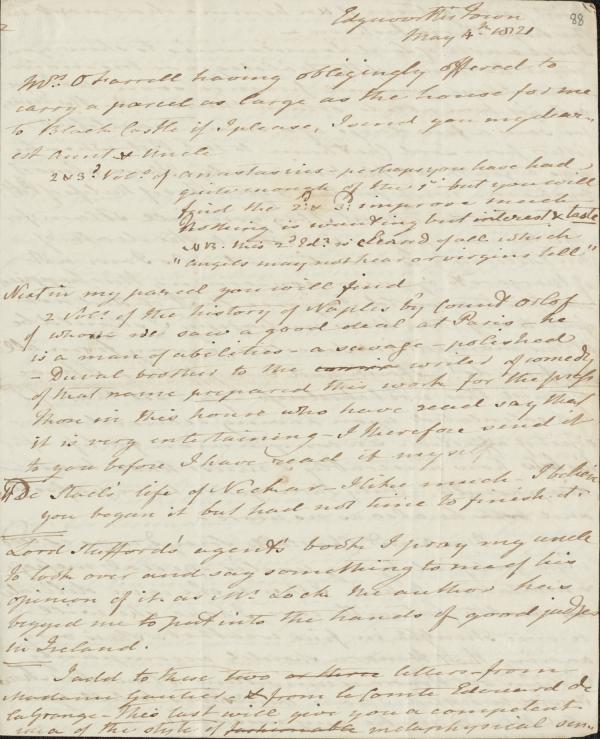 2
88
Edgeworthstown
May 4th. 1821
Mrs. O'Farrell having obligingly offered to
carry a parcel as large as the house for me
to Black Castle if I please, I send you my dear-
est Aunt & Uncle
2 & 3d. Vols. of Anastasius - perhaps you have had
quite enough of the 1st but you will
find the 2d. & 3d. improve much
Nothing is wanting but interest & taste
NB. this 2d Ed. is cleared of all which
"angels may not hear or virgins tell"
Next in my parcel you will find
2 Vols. of the history of Naples by Count Orlof
of whom we saw a good deal at Paris - he
is a man of abilities - a savage - polished
- Duval brother to the writer of comedy
of that name prepared this work for the press
Those in this house who have read say that
it is very entertaining - I therefore send it
to you before I have read it myself
De Stael's life of Neckar - I like much. I believe
you began it but had not time to finish it.
Lord Stafford's agent's book I pray my uncle
to look over and say something to me of his
opinion of it as Mr. Lock the author has
begged me to put into the hands of good judges
in Ireland.
I add to these two or three letters from
Madame Gautier - & from le Comte Edouard de
LaGrange - This last will give you a competent
idea of the style of fashionable metaphysical sen-